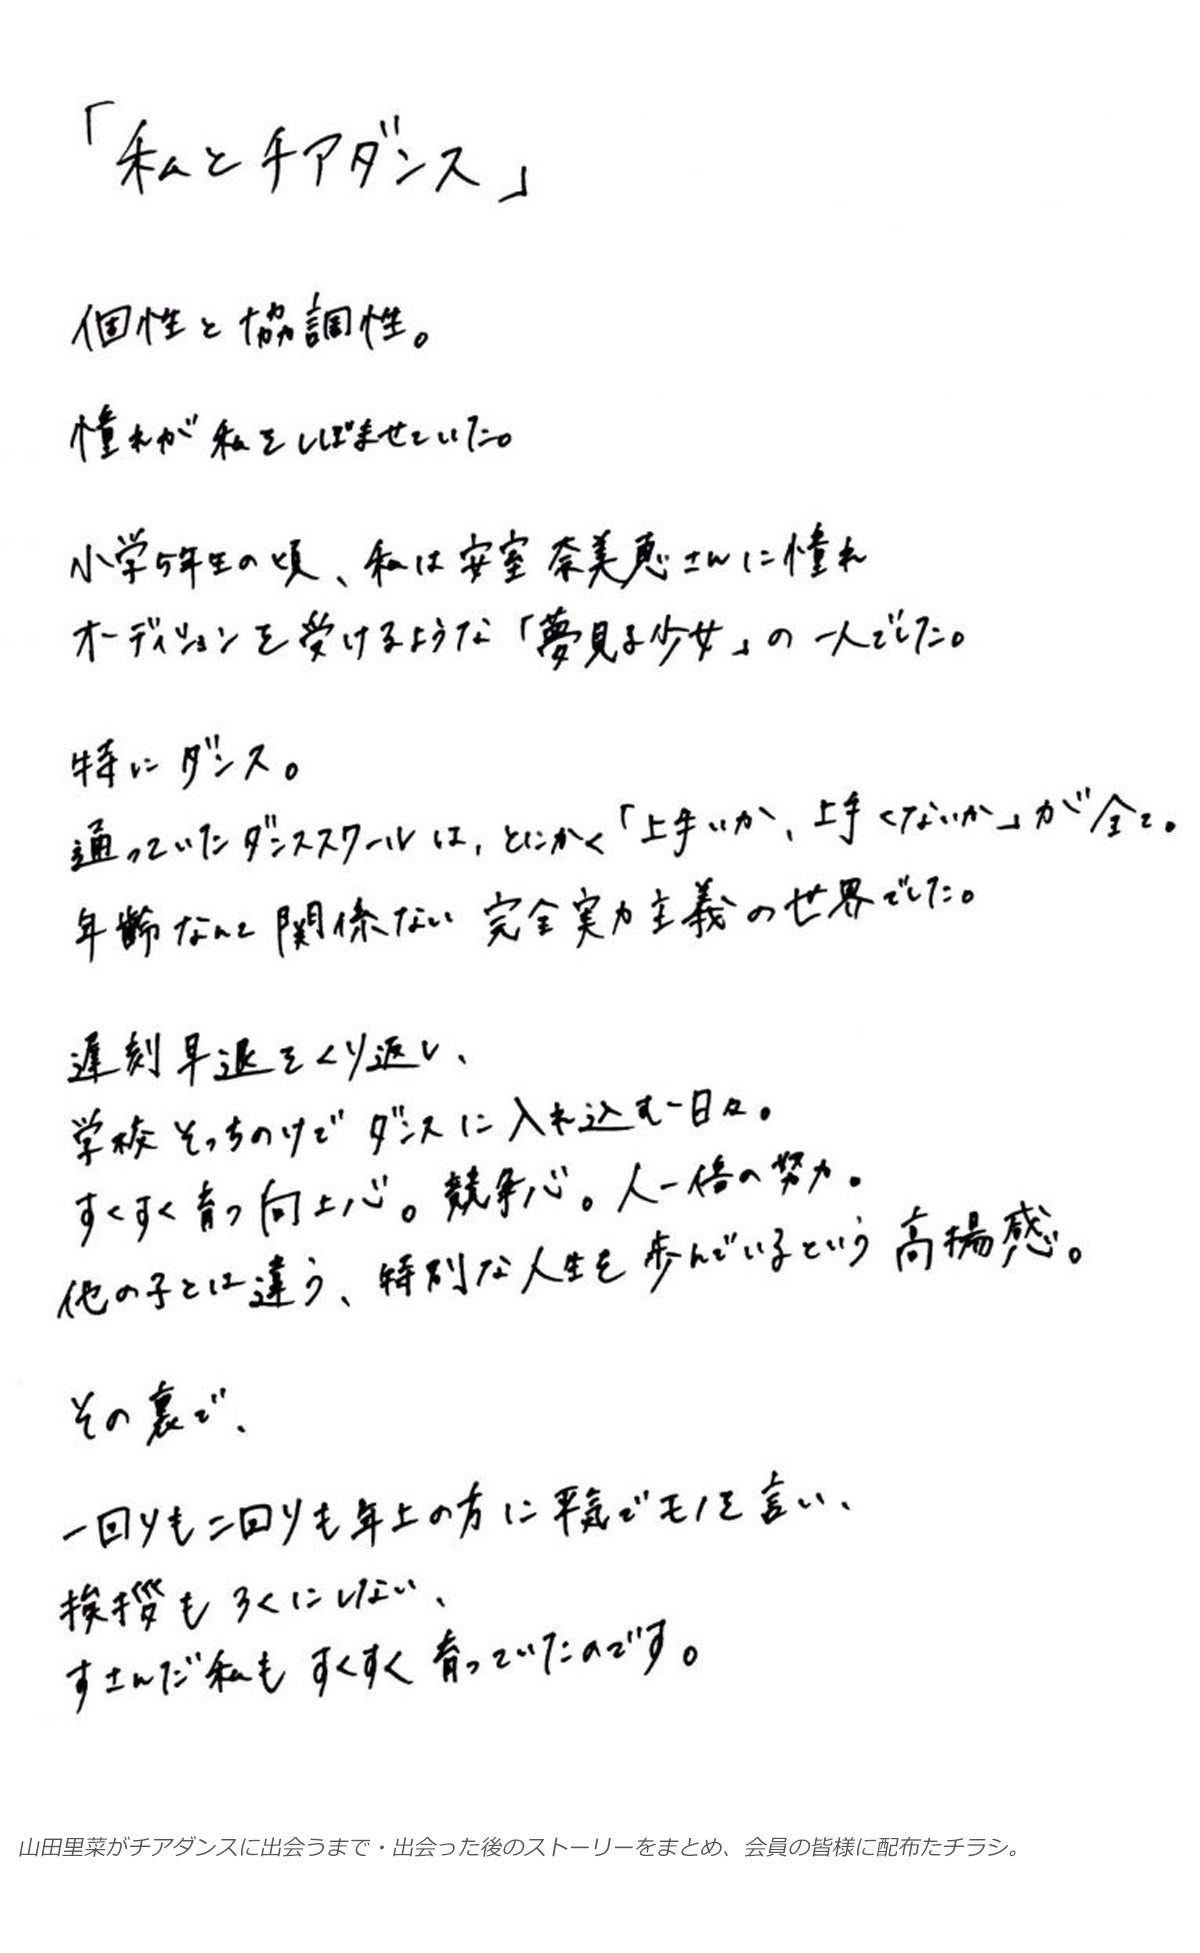 「私とチアダンス」
個性と協調性。
憧れが私をしぼませていた。
小学5年生の頃、私は安室奈美恵さんに憧れ
オーディションを受けるような「夢見る少女」の一人でした。
特にダンス。
通っていたダンススクールは、とにかく「上手いか、上手くないか」が全て。
年齢なんて関係ない完全実力主義の世界でした。
遅刻早退をくり返し、
学校そっちのけでダンスに入れ込む日々。
すくすく育つ向上心。競争心。人一倍の努力。
他の子とは違う、特別な人生を歩んでいるという高揚感。
その裏で、
一回りも二回りも年上の方に平気でモノを言い、
挨拶もろくにしない、
すさんだ私もすくすく育っていたのです。
山田里菜がチアダンスに出会うまで・出会った後のストーリーをまとめ、会員の皆様に配布たチラシ。